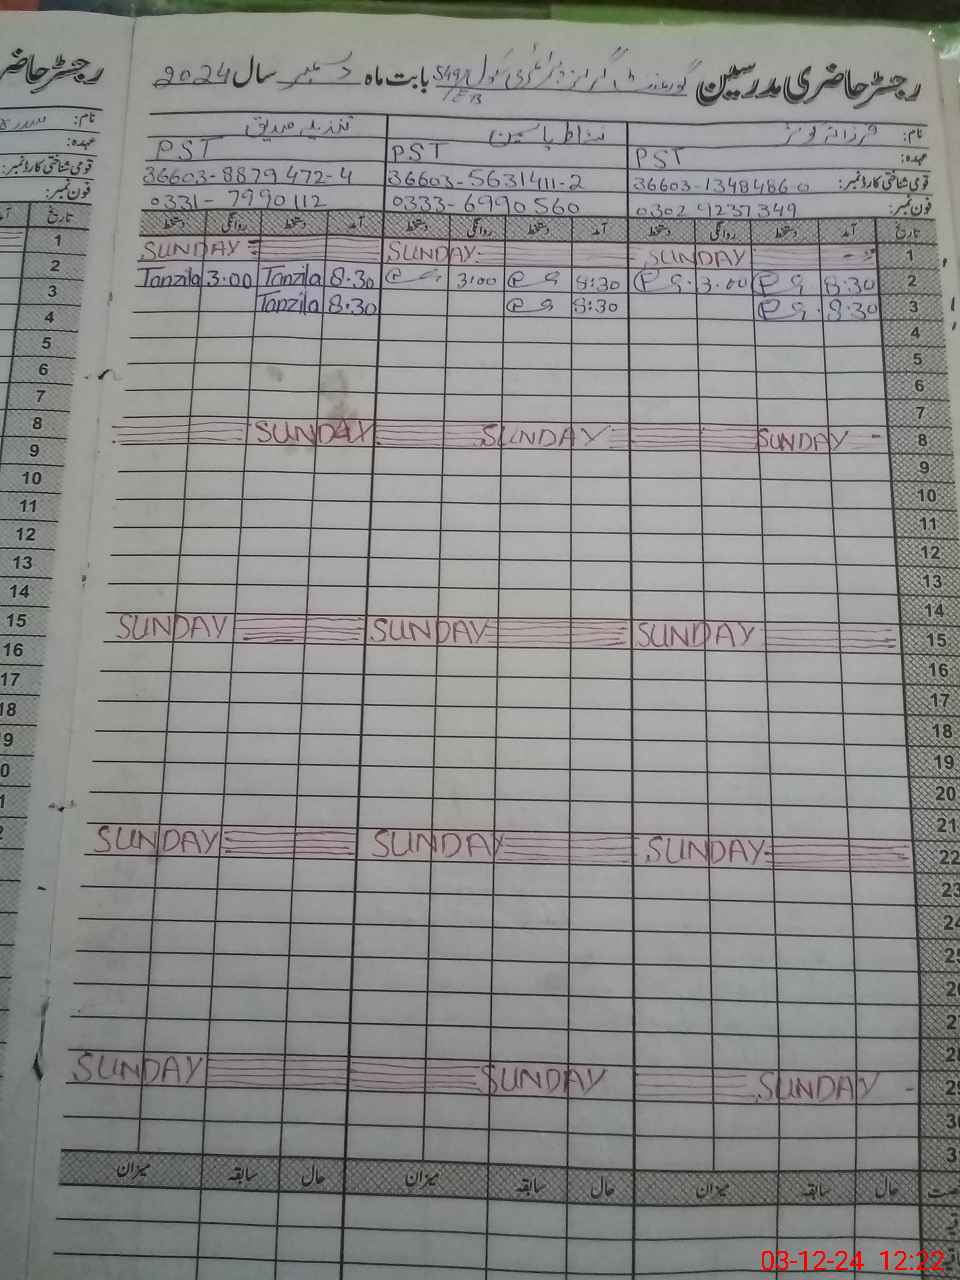 رجسٹر حاضری مدرسین گورنمنٹ گرلز پرائمری سکول 549/EB بابت ماہ دسمبر سال 2024
نام: فرزانہ نشاط یاسمین تنزیلہ صدیق
عہدہ: PST PST PST
قومی شناختی کارڈ نمبر: 36603-1348486-0 36603-5631411-2 36603-8879472-4
فون نمبر: 0302 9237349 0333-6990560 0331-7990112
تاریخ آمد دستخط روانگی دستخط آمد دستخط روانگی دستخط آمد دستخط روانگی دستخط تاریخ
1 SUNDAY SUNDAY SUNDAY 1
2 8.30 3.00 8:30 3:00 8.30 Tanzila 3.00 Tanzila 2
3 8.30 8:30 8.30 Tanzila 3
4 4
5 5
6 6
7 7
8 SUNDAY SUNDAY SUNDAY 8
9 9
10 10
11 11
12 12
13 13
14 14
15 SUNDAY SUNDAY SUNDAY 15
16 16
17 17
18 18
19
20
21
22 SUNDAY SUNDAY SUNDAY
23
24
25
26
27
28
29 SUNDAY SUNDAY SUNDAY
30
حال سابقہ میزان حال سابقہ میزان حال سابقہ میزان
03-12-24 12:22